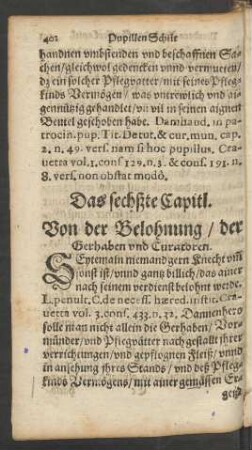 402 Pupillen Schilt
handnen vmbstenden vnd beschaffnen Sa-
chen/gleichwol gedencken vnnd vermueten/
dz ein solcher Pflegvatter/mit seines Pfleg-
kinds Vermögen/ was vntrewlich vnd ai-
gennützig gehandlet/vn vil in seinen aignen
Beutel geschoben habe. Damhaud. in pa-
trocin. pup. Tit. De tut. & cur. mun. cap.
2. n. 49. vers. nam si hoc pupillus. Cra-
uetta vol. 1. cons 129. n. 3. & cons. 191. n.
8. vers. non obstat modò.
Das sechßte Capitl.
Von der Belohnung / der
Gerhaben vnd Curatoren.
SEytemaln niemand gern Knecht vmb
sonst ist/vnnd gantz billich/das ainer
nach seinem verdienst belohnt werde.
L. penult. C. de necess. hæred. instit. Cra-
uetta vol. 3. cons. 433. n. 32. Dannenhero
solle man nicht allein die Gerhaben/ Vor-
münder/vnd Pflegvätter nach gestalt ihrer
verrichtungen/vnd gepflognen Fleiß/ vnnd
in ansehung ihres Stands/ vnd deß Pfleg-
kinds Vermögens/mit ainer gemässen Er-
getz-